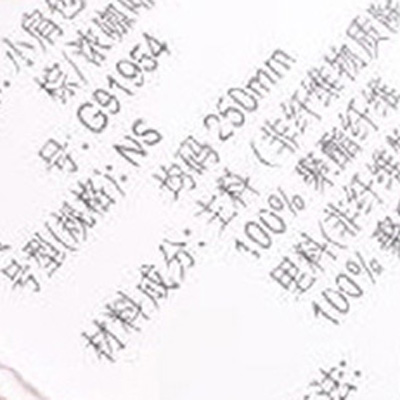 小肩包
棕/浓咖啡
号: G91954
号型(规格): NS
均码 250mm
材料成分: 主料 (非纤维物质除
100% 聚酯纤维
里料(非纤维物
100% 聚
法: